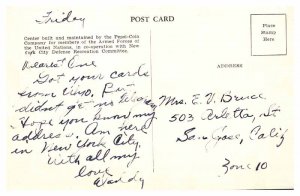 Friday
POST CARD
Center built and maintained by the Pepsi-Cola
Company for members of the Armed Forces of
the United Nations, in co-operation with New
York City Defense Recreation Committee.
Place
Stamp
Here
ADDRESS
Dearest One
Got your cards
from Wyo. But
didn't get no
Hope you found my
address. Am here
in New York City.
with all my
love
Mrs. E. V. Bruce
503 St
San Jose, Calif
Zone 10